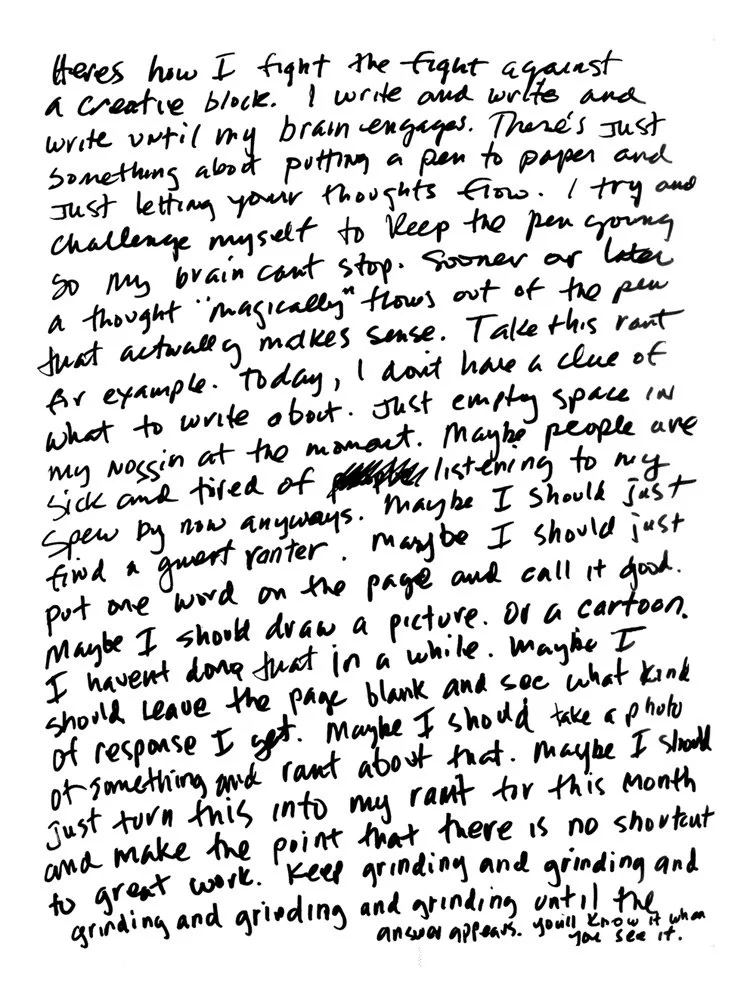 Heres how I fight the fight against
a creative block. I write and write and
write until my brain engages. There's just
something about putting a pen to paper and
just letting your thoughts flow. I try and
challenge myself to keep the pen going
so my brain cant stop. Sooner or later
a thought "magically" flows out of the pen
that actually makes sense. Take this rant
for example. Today, I don't have a clue of
what to write about. Just empty space in
my noggin at the moment. Maybe people are
sick and tired of listening to my
spew by now anyways. Maybe I should just
find a guest ranter. Maybe I should just
put one word on the page and call it good.
Maybe I should draw a picture. Or a cartoon.
I havent done that in a while. Maybe I
should leave the page blank and see what kind
of response I get. Maybe I should take a photo
of something and rant about that. Maybe I should
just turn this into my rant for this month
and make the point that there is no shortcut
to great work. Keep grinding and grinding and
grinding and grinding and grinding until the
answer appears. You'll know it when
you see it.